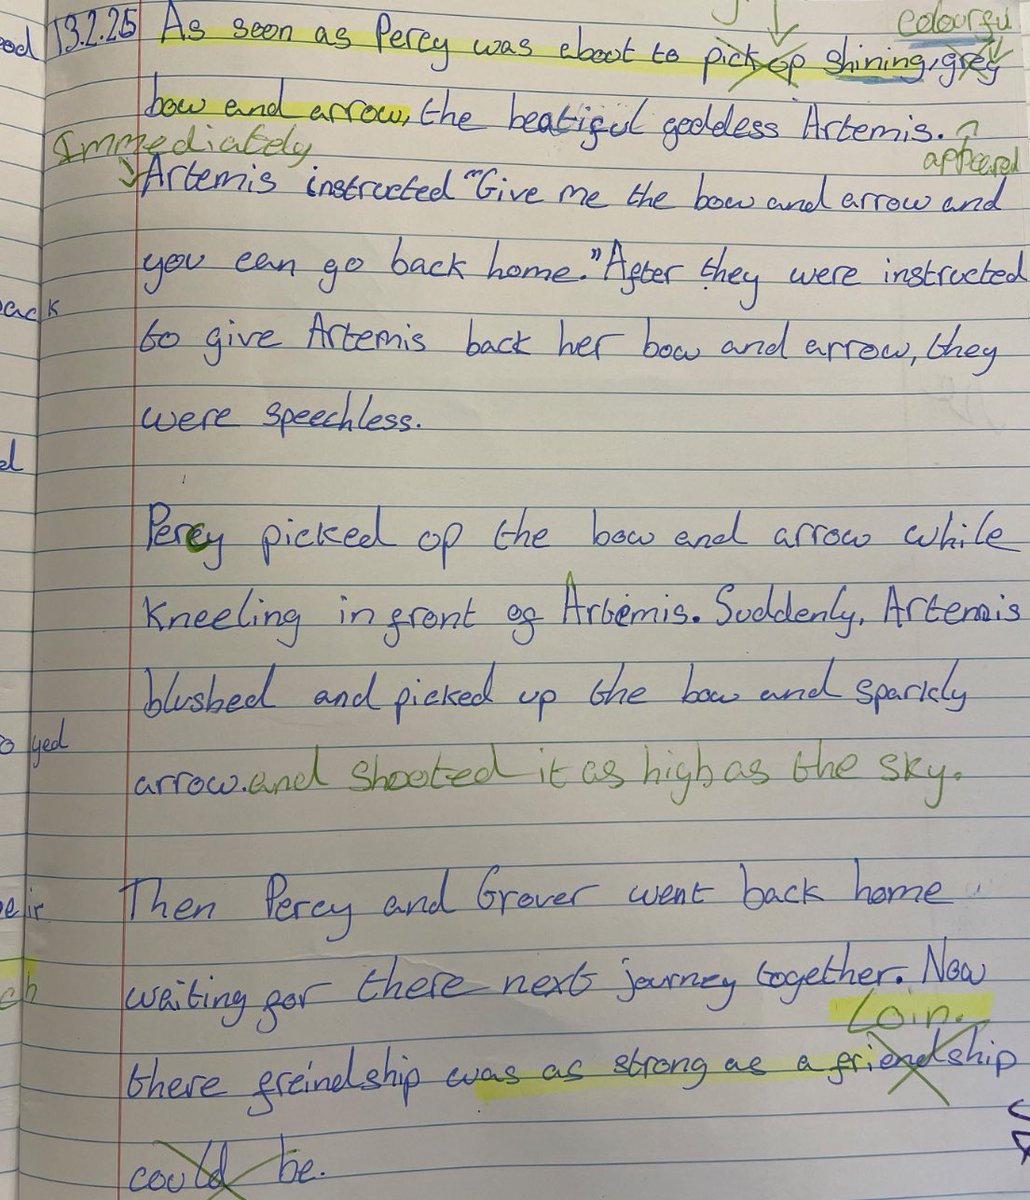 colourful
13.2.25 As seen as Percy was about to pick up shining, grey
bow and arrow, the beatiful goddess Artemis.
appeared
Immediately
Artemis instructed "Give me the bow and arrow and
you can go back home." After they were instructed
to give Artemis back her bow and arrow, they
were speechless.
Percy picked op the bow and arrow while
kneeling in front of Artemis. Suddenly, Artemis
blushed and picked up the bow and sparkly
arrow. and shooted it as high as the sky.
Then Percy and Grover went back home
waiting for there next journey together. Now
Loin.
there freindship was as strong as a friendship
could be.